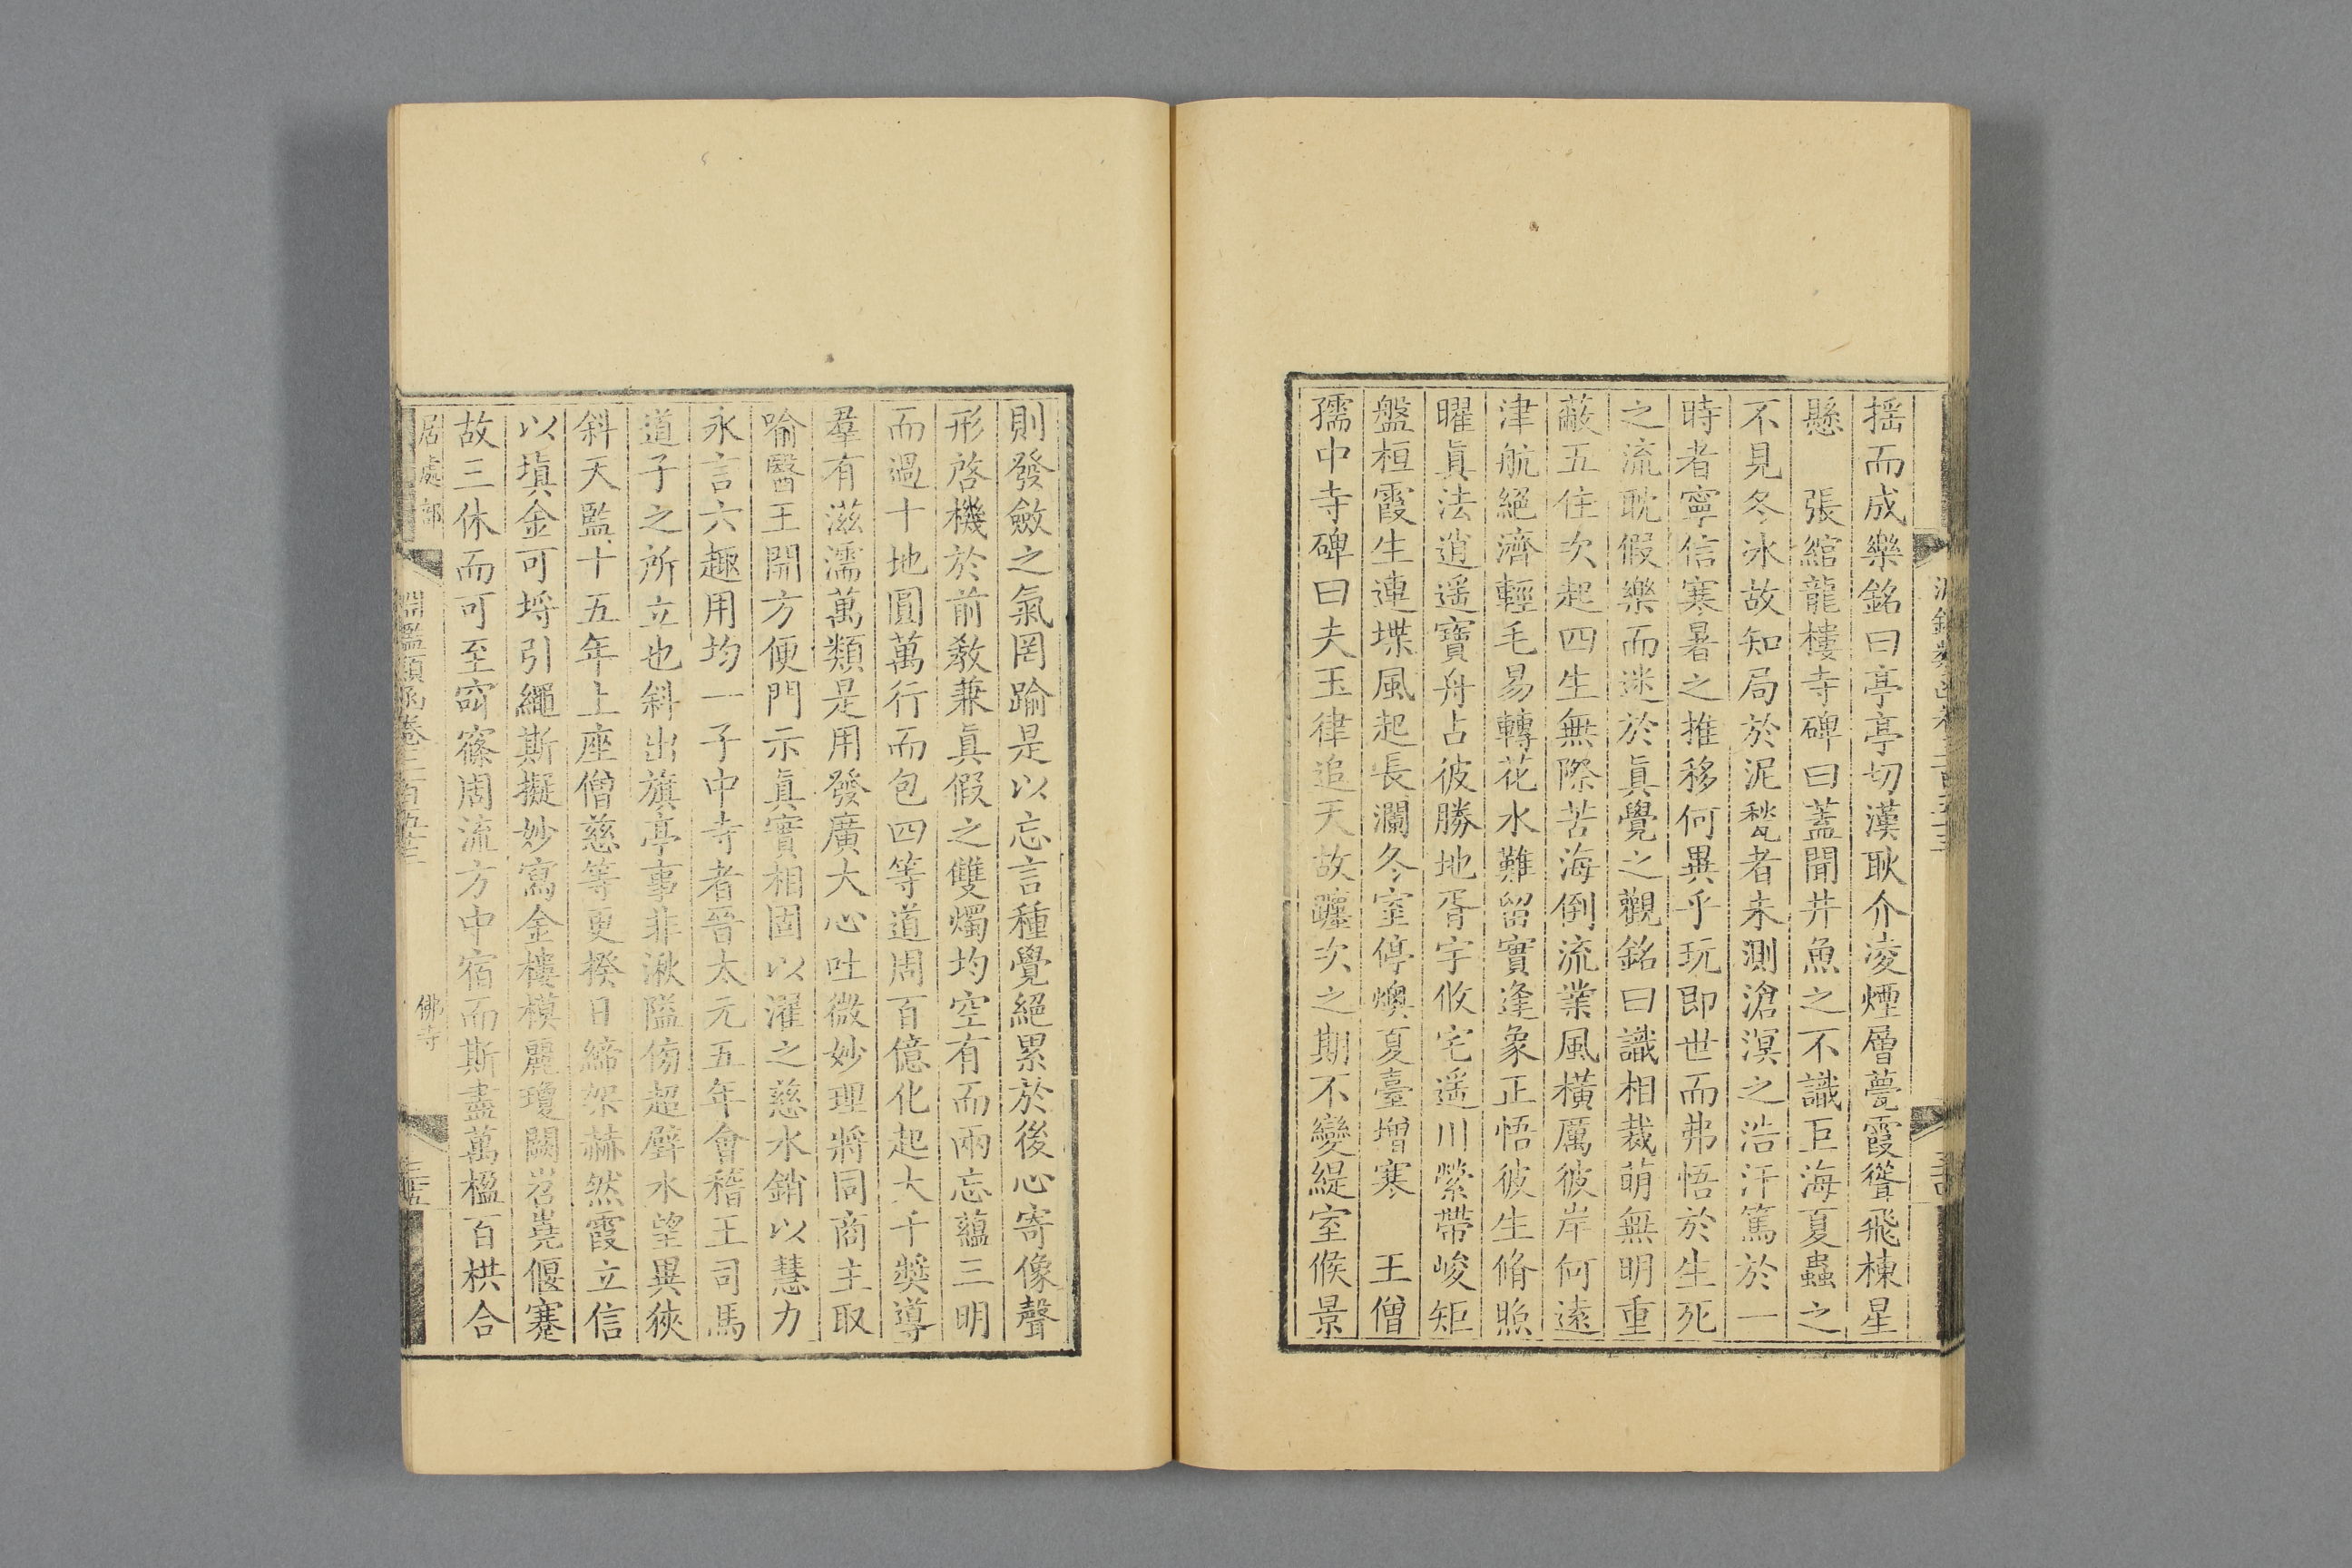 揺而成樂銘曰亭亭切漢耿介凌煙層甍霞聳飛棟星
懸　張綰龍樓寺碑曰蓋聞井魚之不識巨海夏蟲之
不見冬冰故知局於泥甃者未測滄溟之浩汗篤於一
時者寧信寒暑之推移何異乎玩即世而弗悟於生死
之流耽假樂而迷於眞覺之觀銘曰識相裁萌無明重
蔽五住次起四生無際苦海倒流業風橫厲彼岸何遠
津航絕濟輕毛易轉花水難留實逢象正悟彼生脩照
曜眞法逍遥寶舟占彼勝地胥宇攸宅遥川縈帶峻矩
盤桓霞生連堞風起長瀾冬室停燠夏臺增寒　王僧
孺中寺碑曰夫玉律追天故躔次之期不變緹室候景
則發斂之氣罔踰是以忘言種覺絕累於後心寄像聲
形啓機於前教兼眞假之雙燭均空有而兩忘蘊三明
而過十地圓萬行而包四等道周百億化起大千獎導
羣有滋濡萬類是用發廣大心吐微妙理將同商主取
喻醫王開方便門示眞實相固以濯之慈水銷以慧力
永言六趣用均一子中寺者晉太元五年會稽王司馬
道子之所立也斜出旗亭事非湫隘傍超璧水望異狹
斜天監十五年上座僧慈等更揆日締架赫然霞立信
以塡金可埒引繩斯擬妙寫金樓模麗瓊闕岧嶤偃蹇
故三休而可至窈窱周流方中宿而斯盡萬楹百栱合
居處部
淵鑑類函卷三百五十三
佛寺
三五